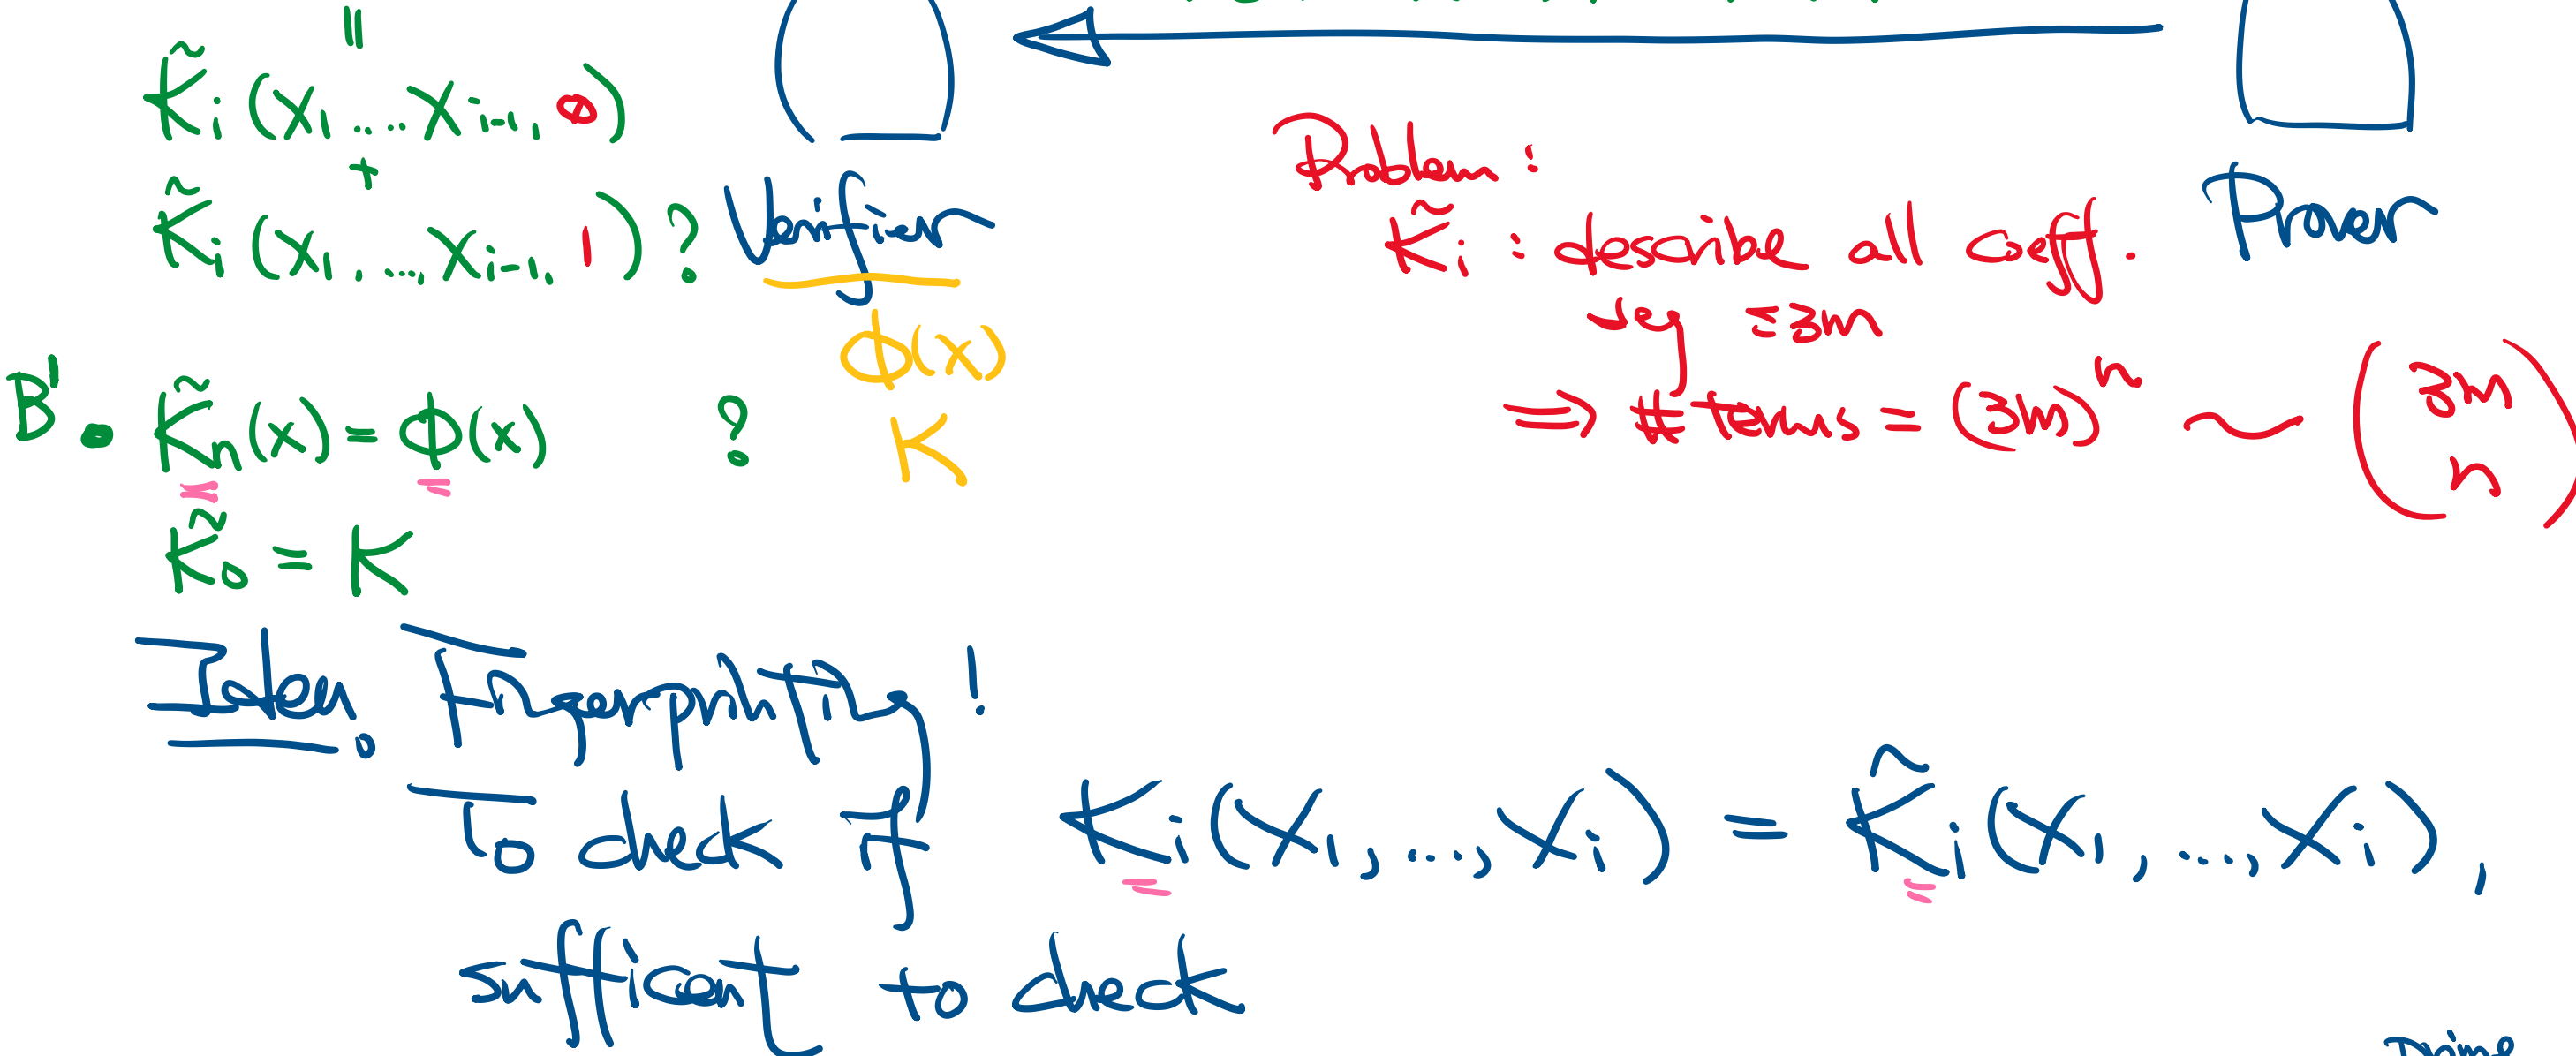 ||
K̃i (x1 .... xi-1, 0)
+
K̃i (x1, ..., xi-1, 1) ?
Verifier
ϕ(x)
K
Problem :
K̃i : describe all coeff.
deg ≤ 3m
⇒ # terms = (3m)^n ~ (3m n)
Prover
B'. K̃n(x) = ϕ(x) ?
K̃0 = K
Idea. Fingerprinting !
To check if Ki(x1, ..., xi) = K̃i(x1, ..., xi),
sufficent to check